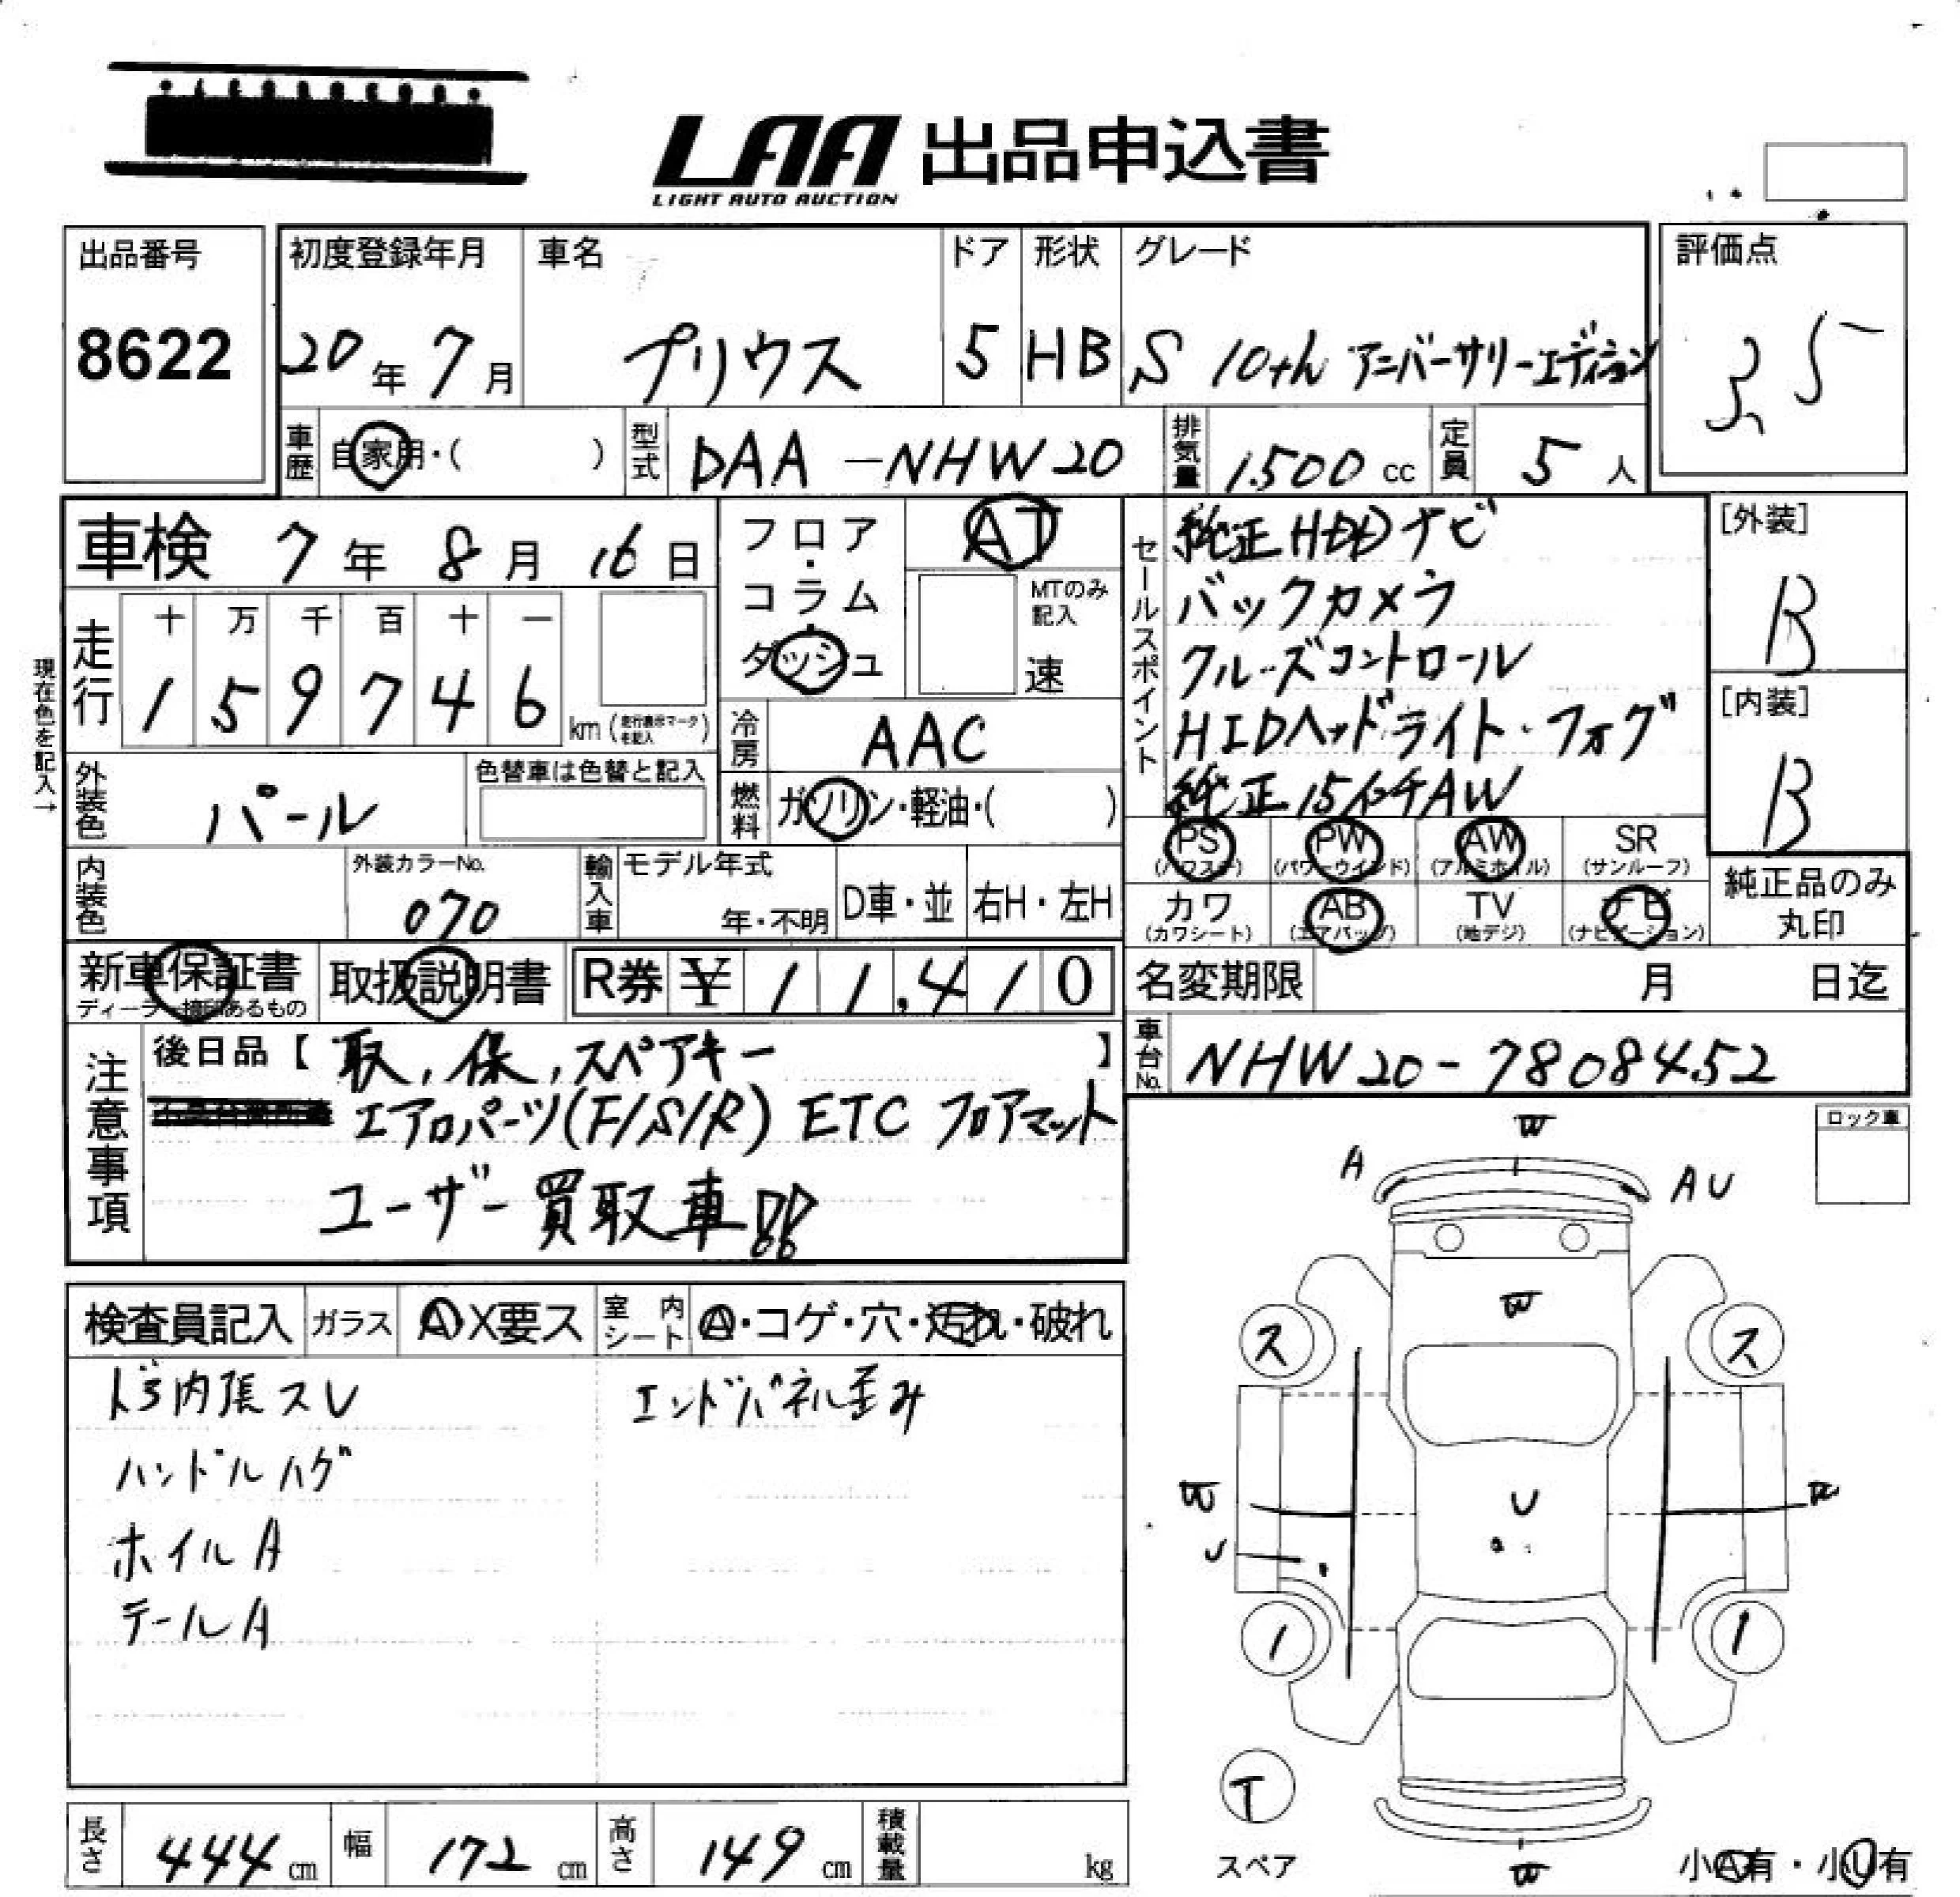 LAA 出品申込書
LIGHT AUTO AUCTION
出品番号
8622
初度登録年月
20年7月
車名
プリウス
ドア
5
形状
HB
グレード
S 10th アニバーサリーエディション
評価点
3.5
車歴 自家用・( )
型式 DAA-NHW20
排気量 1500 cc
定員 5人
車検 7年8月16日
現在色を記入→
走行
十 万 千 百 十 一
1 5 9 7 4 6
km(走行表示マークを記入)
フロア・コラム・ダッシュ
AT
MTのみ記入
速
冷房 AAC
燃料 ガソリン・軽油・( )
外装色 パール
色替車は色替と記入
内装色
外装カラーNo.
070
輸入車
モデル年式
年・不明
D車・並
右H・左H
セールスポイント
純正HDDナビ
バックカメラ
クルーズコントロール
HIDヘッドライト・フォグ
純正15インチAW
[外装]
B
[内装]
B
PS
(パワステ)
PW
(パワーウインド)
AW
(アルミホイル)
SR
(サンルーフ)
カワ
(カワシート)
AB
(エアバッグ)
TV
(地デジ)
ナビ
(ナビゲーション)
純正品のみ
丸印
新車保証書
ディーラー捺印あるもの
取扱説明書
R券 ¥11,410
名変期限 月 日迄
車台No. NHW20-7808452
注意事項
後日品【取,保,スペアキー】
エアロパーツ(F/S/R) ETC フロアマット
ユーザー買取車!!
ロック車
検査員記入
ガラス A X要ス
室内シート A・コゲ・穴・汚れ・破れ
ドラ内張スレ
エンドパネル歪み
ハンドルハゲ
ホイルA
テールA
W
A
AU
W
ス
ス
W
U
W
U
1
1
T
スペア
W
小A有・小U有
長さ 444 cm
幅 172 cm
高さ 149 cm
積載量 kg